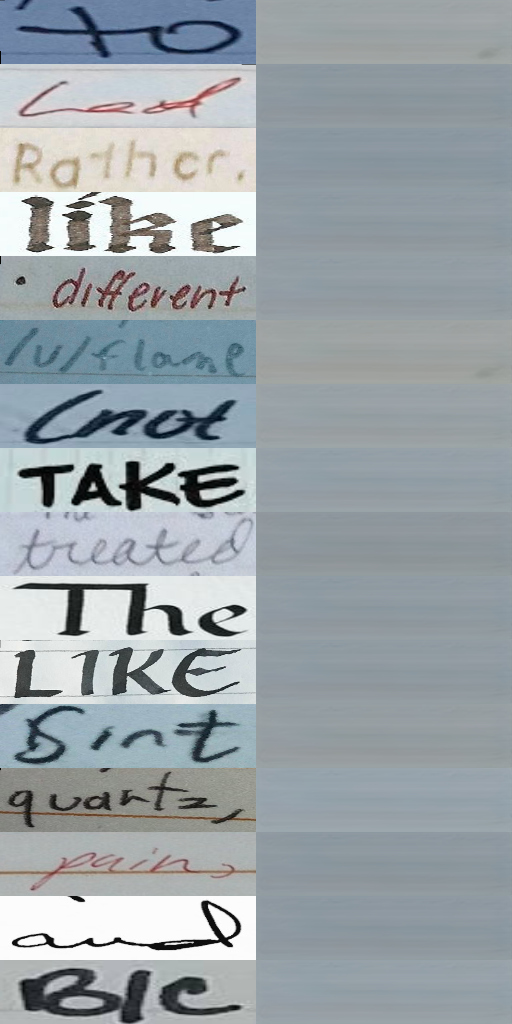 to
Lead
Rather.
like
• different
/u/flame
(not
TAKE
treated
The
LIKE
Sint
quartz,
pain,
and
B/C